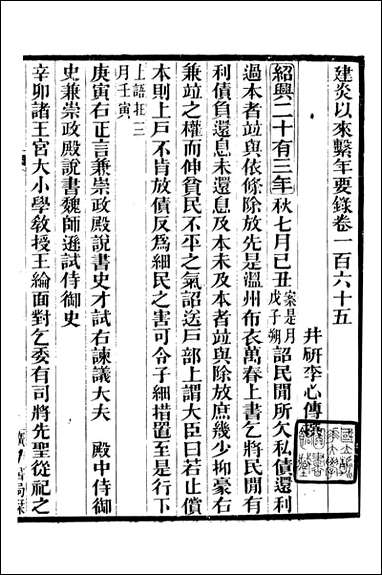 建炎以來繫年要錄卷一百六十五
井研李心傳撰
紹興二十有三年秋七月己丑案是月戊子朔詔民間所欠私債還利
過本者竝與依條除放先是溫州布衣萬春上書乞將民間有
利債負還息未還息及本未及本者竝與除放庶幾少抑豪右
兼竝之權而伸貧民不平之氣詔送戶部上謂大臣曰若止償
本則上戶不肯放債反爲細民之害可令子細措置至是行下
上語在三月壬寅
庚寅右正言兼崇政殿說書史才試右諫議大夫　殿中侍御
史兼崇政殿說書魏師遜試侍御史
辛卯諸王宮大小學敎授王綸面對乞委有司將先聖從祀之